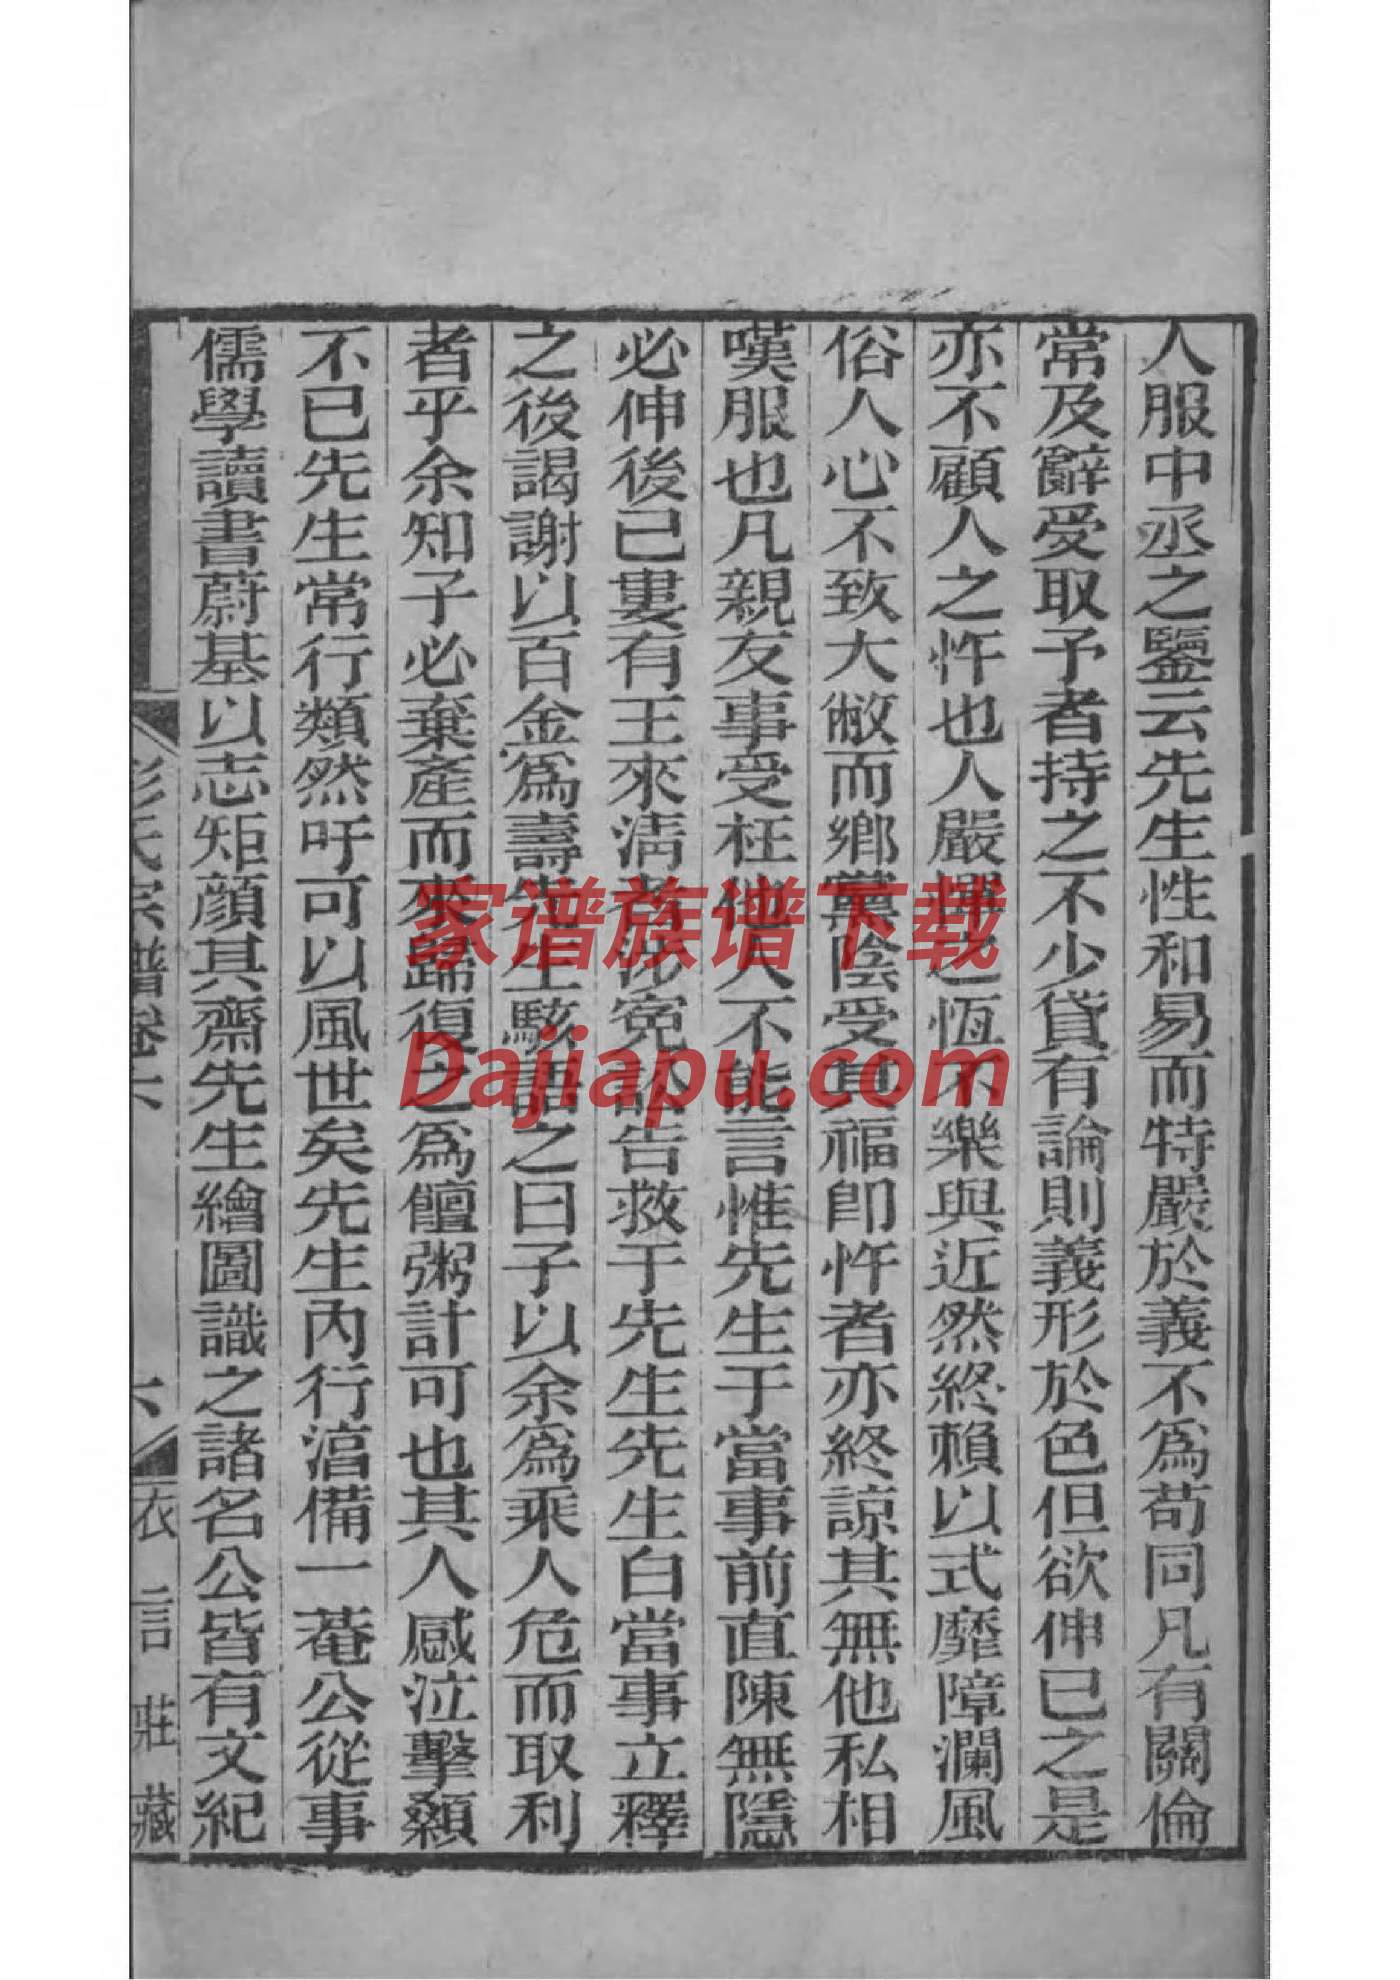 人服中丞之鑒云先生性和易而特嚴於義不爲苟同凡有關倫
常及辭受取予者持之不少貸有論則義形於色但欲伸已之是
亦不顧人之忤也人嚴憚之恆不樂與近然終賴以式靡障瀾風
俗人心不致大敝而鄉黨陰受其福即忤者亦終諒其無他私相
嘆服也凡親友事受枉他人不能言惟先生于當事前直陳無隱
必伸後已婁有王來清者涉寃訟告救于先生先生白當事立釋
之後謁謝以百金爲壽先生駭語之曰子以余爲乘人危而取利
者乎余知子必棄產而來歸復之爲饘粥計可也其人感泣擊顙
不已先生常行類然吁可以風世矣先生內行湻備一菴公從事
儒學讀書蔚基以志矩顏其齋先生繪圖識之諸名公皆有文紀
彭氏宗譜卷六 六 衣言莊藏
家谱族谱下载
Dajiapu.com